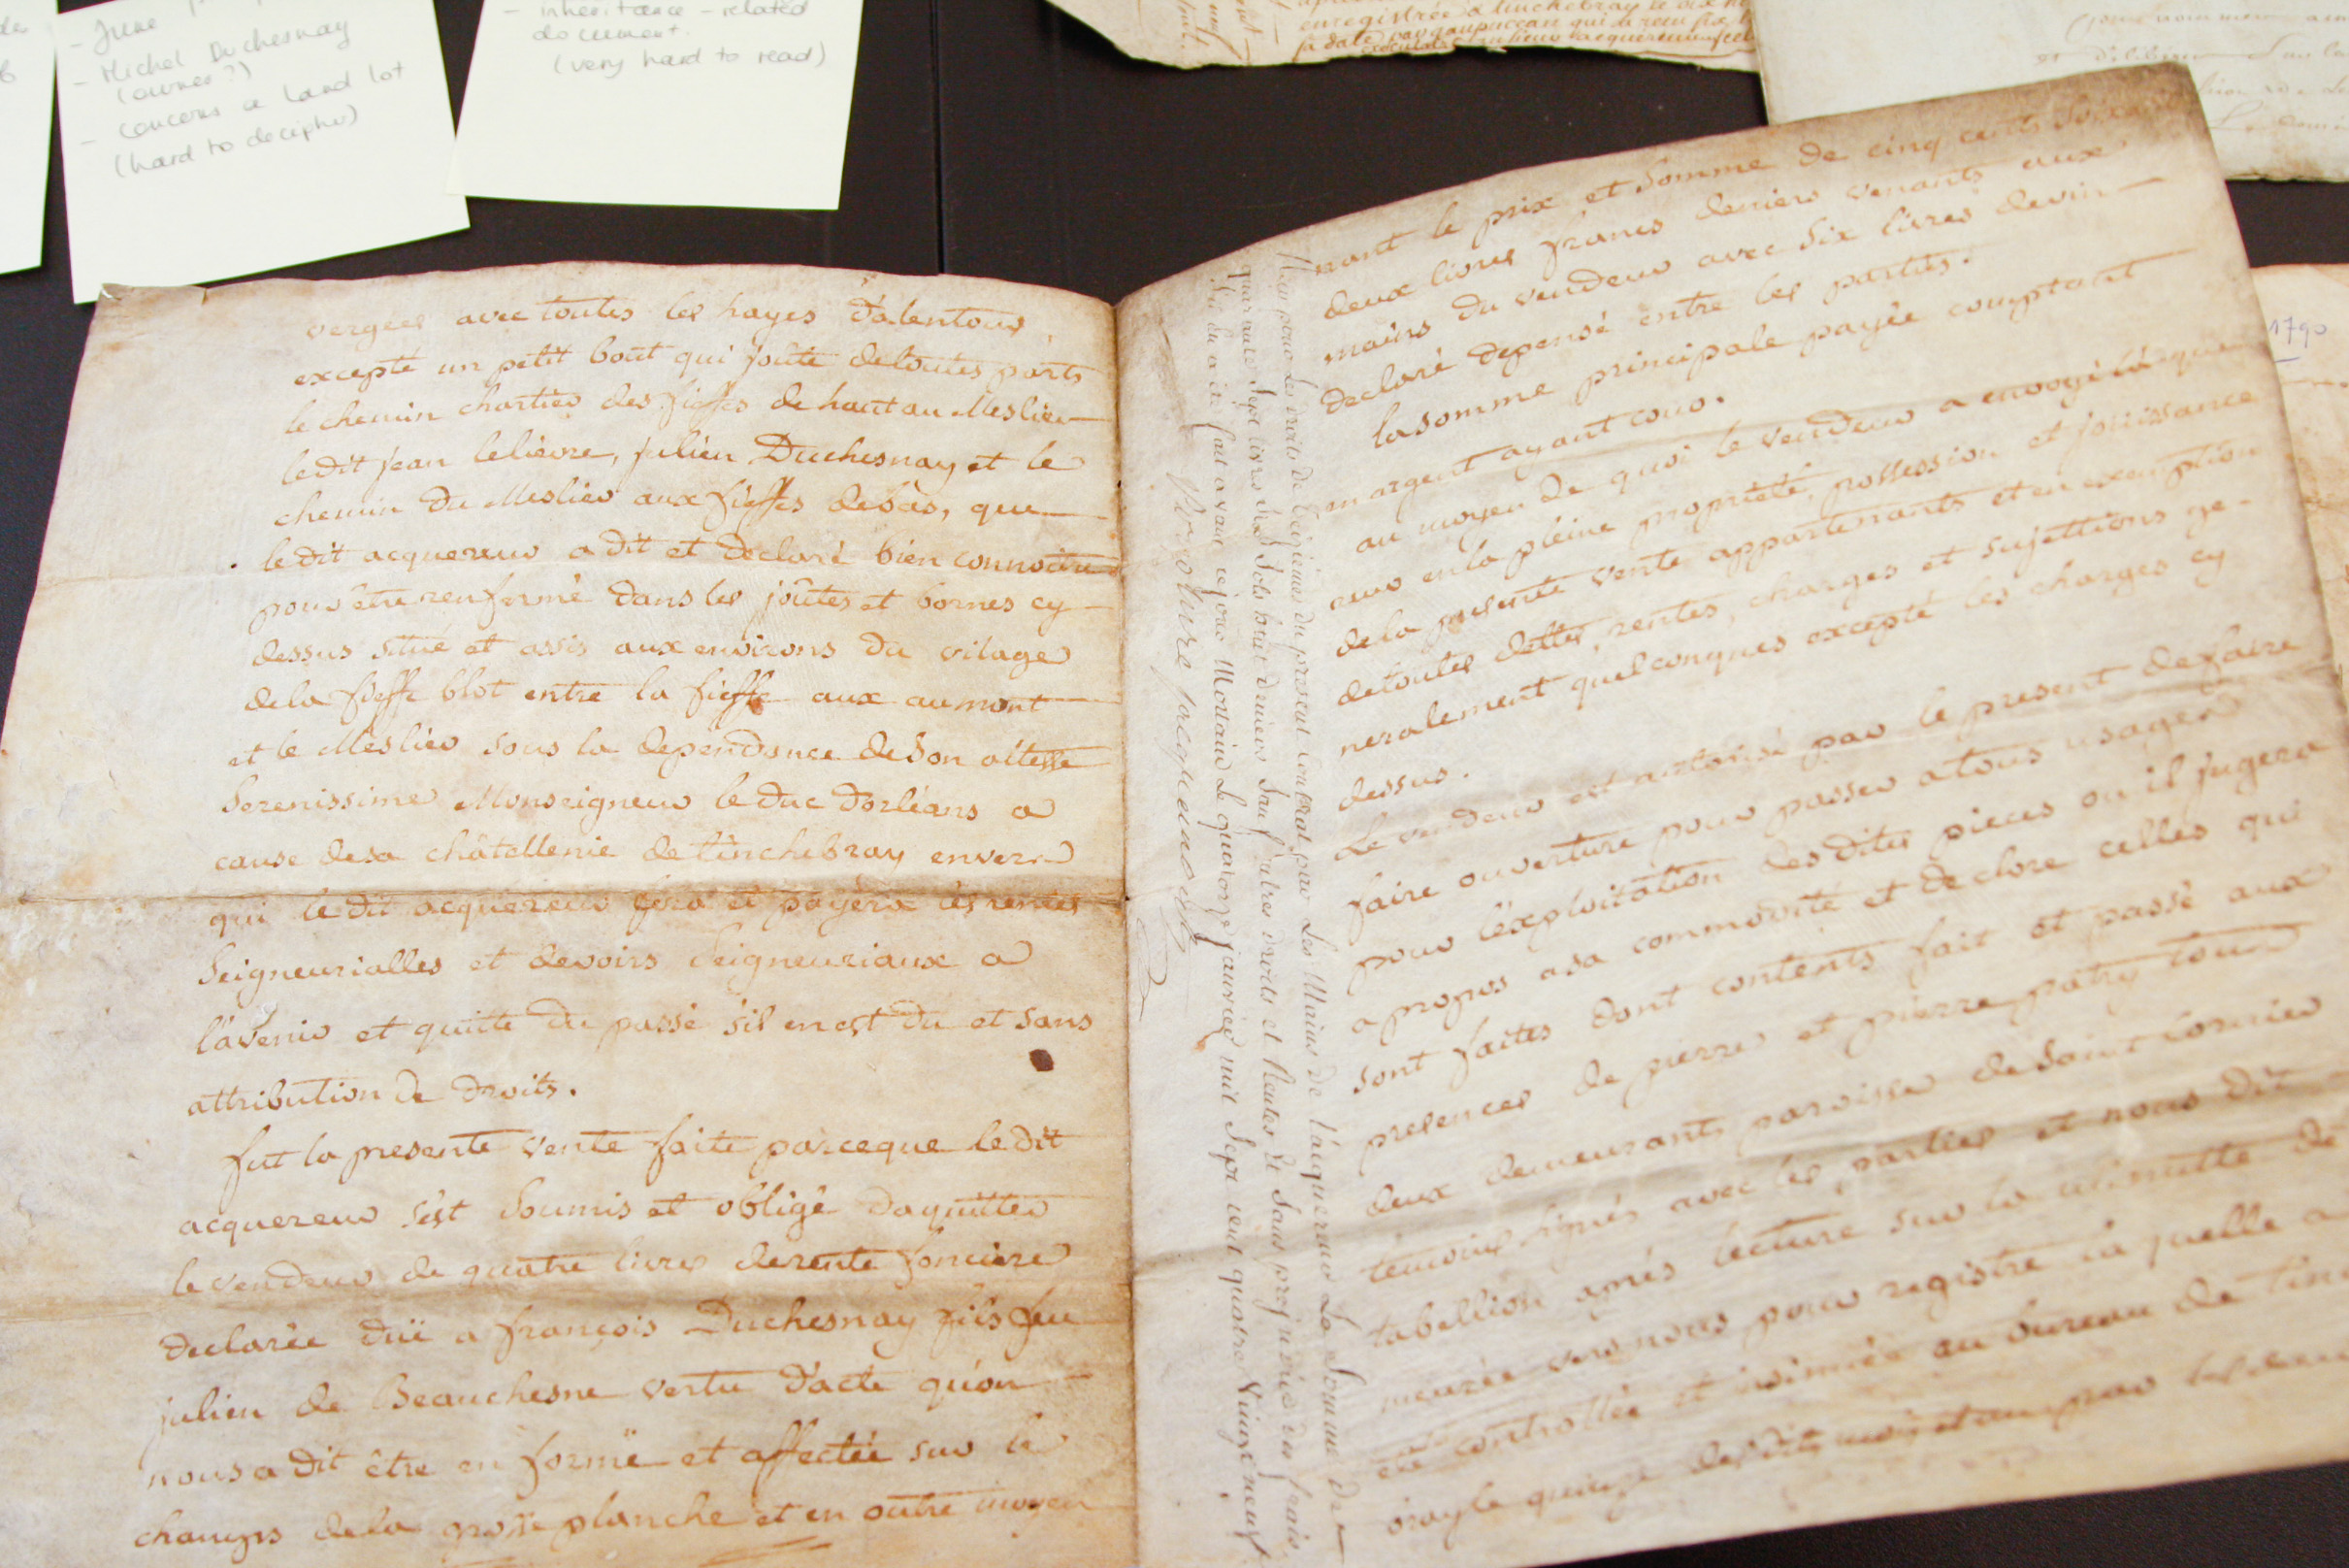 - June
- Michel Duchesnay
(owner?)
- concerns a land lot
(hard to decipher)
- inheritance - related
document.
(very hard to read)
1790
vergées avec toutes les hayes d'alentour
excepté un petit bout qui joûte detoutes parts
le chemin chartier des fieffes de haut au Meslier
ledit jean lelièvre, julien Duchesnay et le
chemin du Meslier aux fieffes debas, que
ledit acquereur a dit et declaré bien connoitre
pour être renfermé dans les joûtes et bornes cy
dessus situé et assis aux environs du vilage
dela fieffe blot entre la fieffe aux aumont
et le Meslier sous la dependance deson altesse
Serenissime Monseigneur le duc d'orléans a
cause desa châtellenie de tinchebray envers
qui ledit acquereur fera et payera les rentes
Seigneurialles et devoirs Seigneuriaux a
l'avenir et quitte du passé s'il en est du et sans
attribution de droits.
fut la presente vente faite parceque ledit
acquereur s'est Soumis et obligé daquitter
le vendeur de quatre livres derente fonciere
declarée düe a françois Duchesnay fils feu
julien de Beauchesne vertu d'acte qu'on
nous a dit être en forme et affectée sur le
champs dela grosse planche et en outre moyen
nant le prix et Somme de cinq cents Soixante
deux livres francs deniers venants aux
mains du vendeur avec Six livres devin
declaré depensé entre les parties.
la somme principale payée comptant
en argent ayant cour.
au moyen de quoi le vendeur a envoyé l'acque
reur en la pleine proprieté, possession et jouissance
dela presente vente appartenants et en exemption
detoutes dettes, rentes, charges et sujettions ge-
neralement quelconques excepté les charges cy
dessus.
Le vendeur est autorisé par le present de faire
faire ouverture pour passer atous usages
pour l'exploitation desdites pieces ou il jugera
a propos asa commodité et declore celles qui
sont faites dont contents fait et passé aux
presences de pierre et pierre patry tous
deux demeurants paroisse de Saint Cornier
témoins signés avec les parties et nous dit
tabellion aprés lecture sur la minutte de
meurée vers nous pour registre la quelle a
eté controllée et insinuée au bureau de tinc
bray le quinze desdits mois et an par
Reçu pour les droits de treizieme du present Contrat par les Mains de l'acquereur La Somme de
quarante Sept livres dix Sols huit deniers Sauf autres droits et Rentes et Sans prejudice des frais
fait a vant ce jour Mortain Le quatorze janvier mil Sept cent quatre Vingt neuf.
pour oture jacquereur